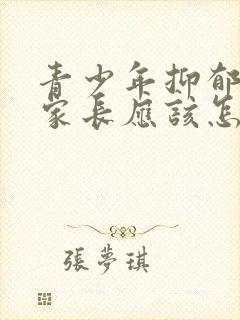 青少年抑郁
家长應該怎
張夢琪